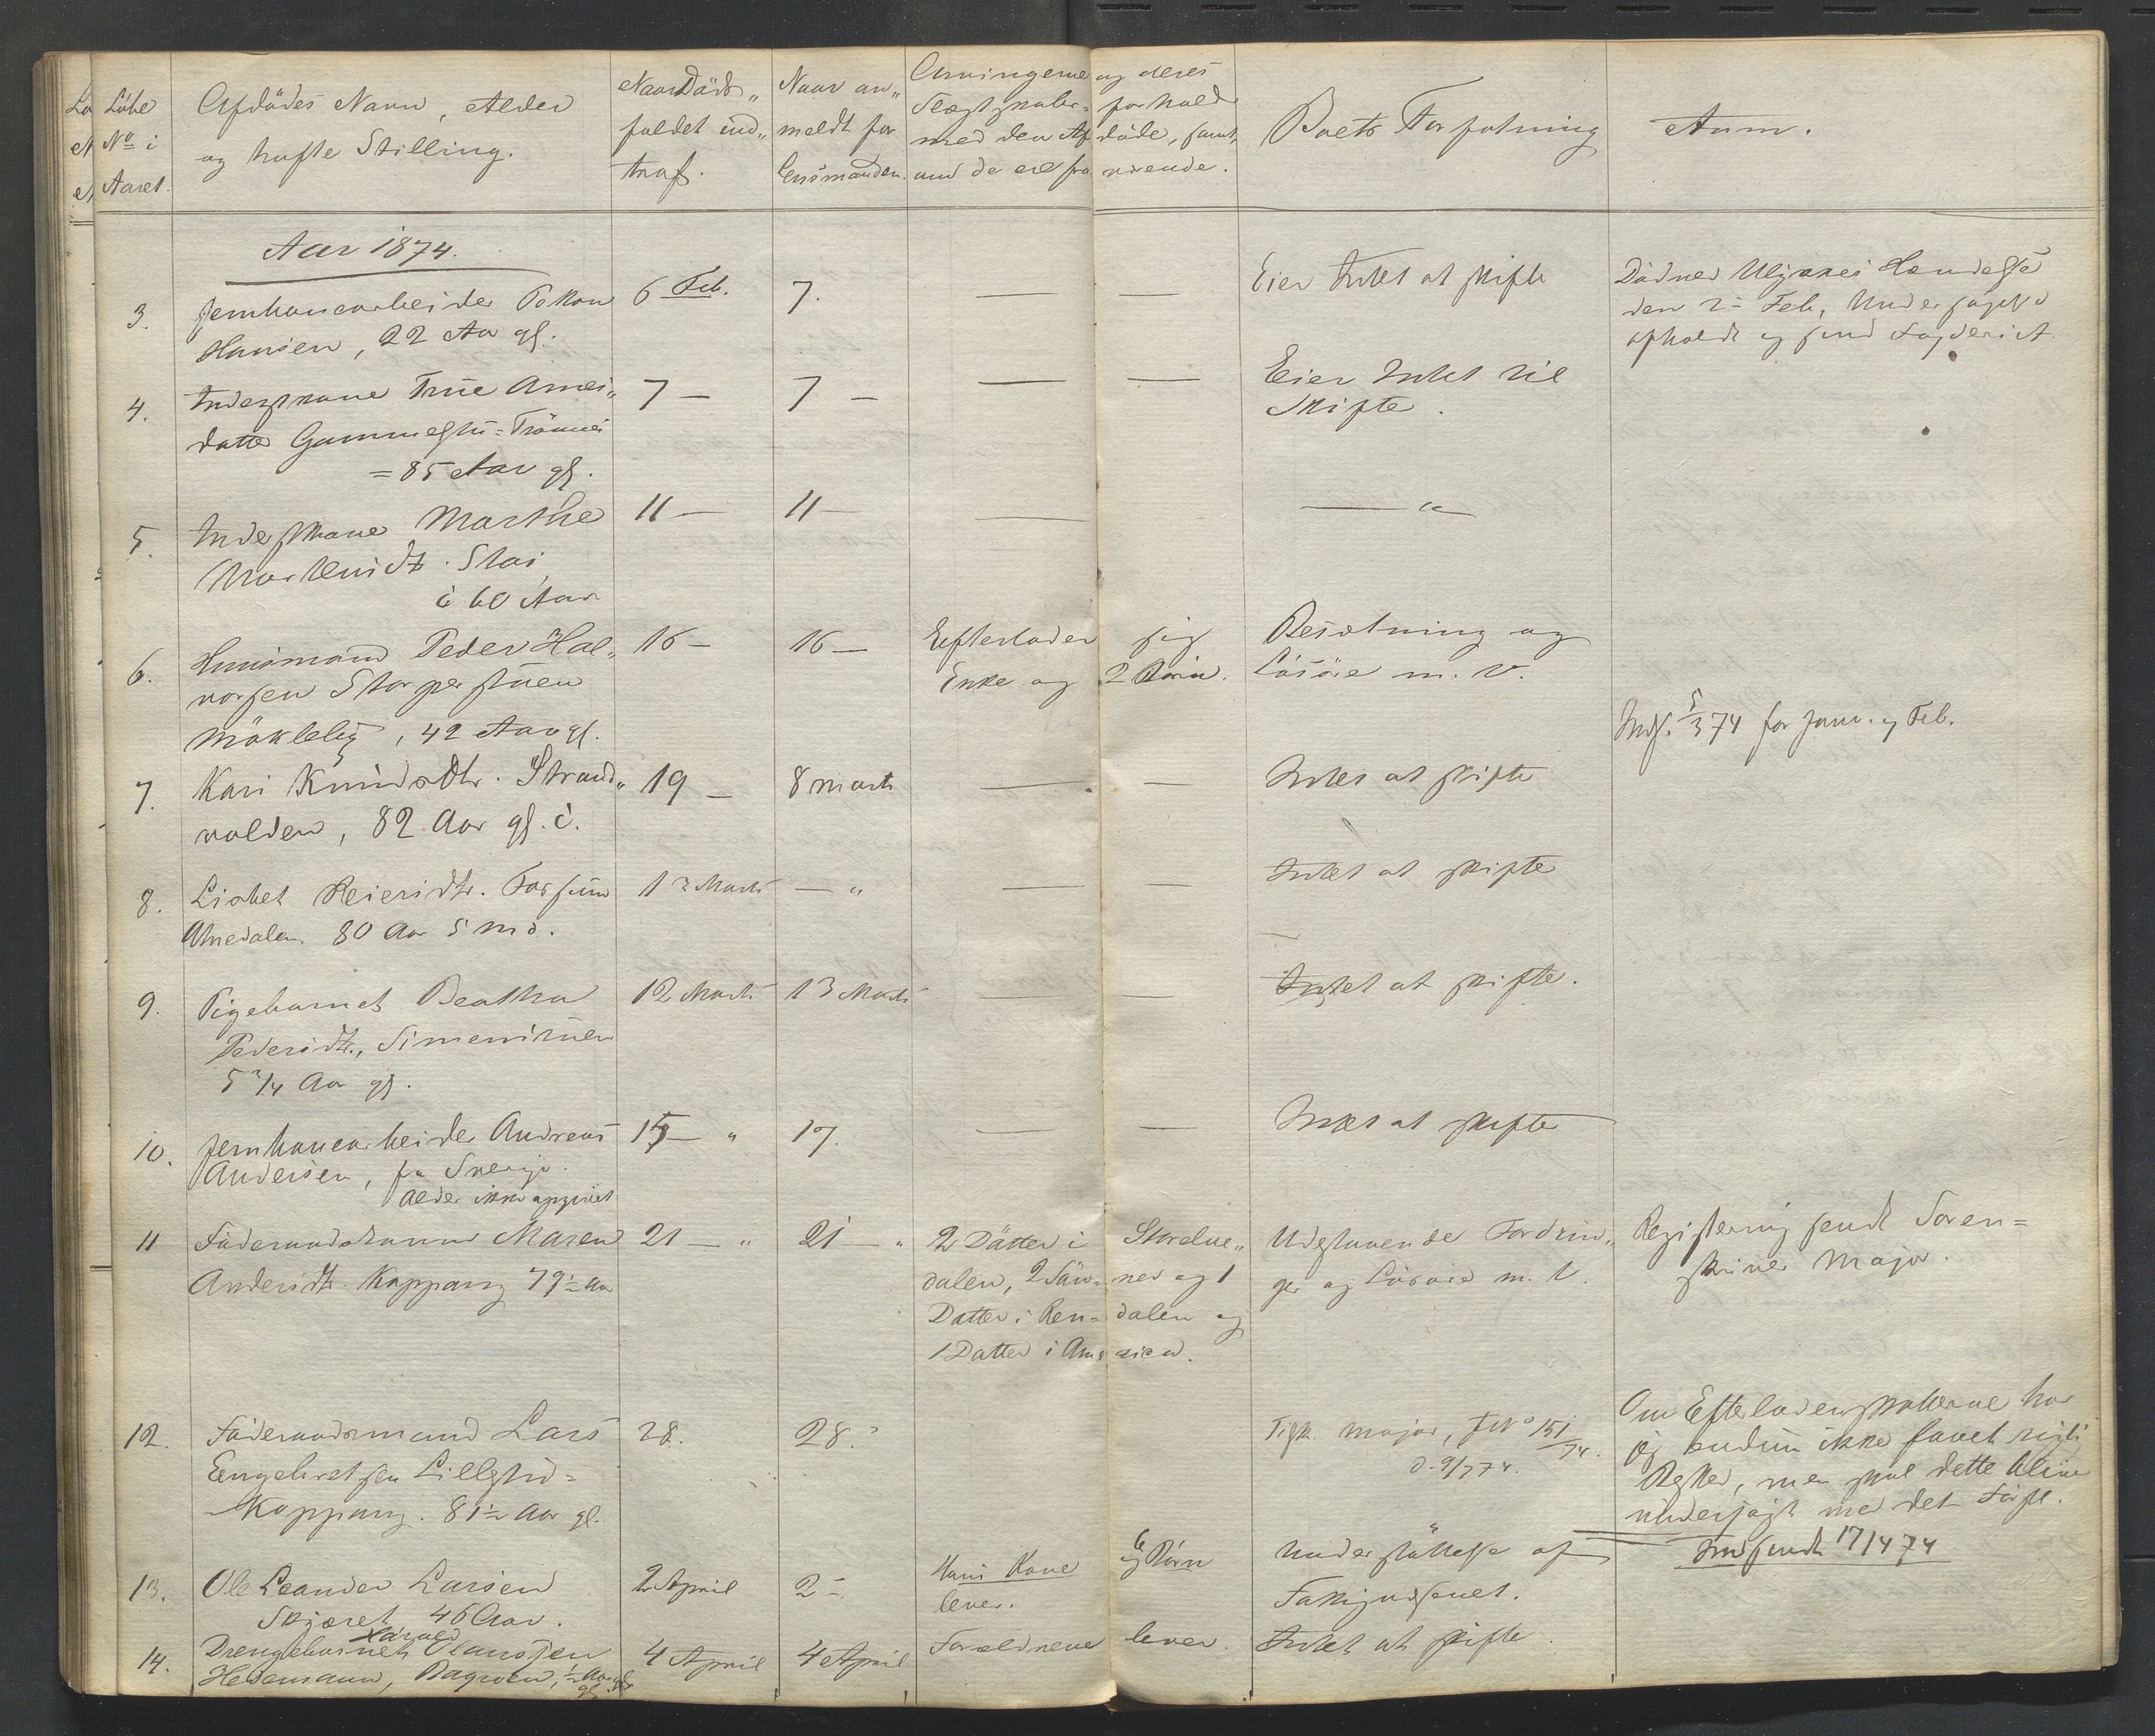 Løbe
No i
Aaret.
Afdødes Navn, Alder
og hafte Stilling.
Naar Døds„
faldet ind„
traf.
Naar an„
meldt for
Lensmanden.
Arvingerne og deres
Slægtskabs= forhold
med den Afdøde, samt,
om de ere fraværende.
Boets Forfatning
Anm.
Aar 1874.
3.
Jernbanearbeider Håkon
Hansen, 22 Aar gl.
6 Feb.
7.
— —
Eier Intet at skifte
Død ved Ulykkes Hændelse
den 2- Feb, Undersøgelse
opholdt og send Fogderiet
4.
Inderstkone Trine Arnes„
datter Gammelstu=Trønnes
=85 Aar gl.
7 —
7 —
— —
Eier Intet til
Skifte.
5.
Inderstkone Marthe
Martensdt. Stai
i 60 Aar
11 —
11 —
—
— " —
6.
Huusmand Peder Hal„
vorsen Storperstuen
Møkleby, 42 Aar gl.
16 —
16 —
Efterlader sig
Enke og 2 Børn.
Besætning og
Løsøre m. v.
Inds. 5/3 74 for Janu. og Feb.
7.
Kari Knudsdtr. Strand„
volden, 82 Aar gl. i.
19 —
8 Marts
— —
Intet at skifte
8.
Lisbet Reiersdtr.
Atnedalen. 80 Aar 5 md.
1 Marts
— "
— —
Intet at skifte
9.
Pigebarnet Beathe
Pedersdt., Simenstuen
5 3/4 Aar gl.
12 Marts
13 Marts
— —
Intet at skifte.
10.
Jernbanearbeider Andreas
Andersen, fra Sverige.
Alder ikke opgivet
15 — "
17.
— —
Intet at skifte
11
Føderaadskone Maren
Andersdt. Koppang 79½ Aar
21 — "
21 — "
2 Døtter i Storelve„
dalen, 2 Sønner og 1
Datter i Ren=dalen og
1 Datter i Amerika.
Udestaaende Fordrin„
ger og Løsøre m. V.
Registering sendt Soren=
skriver Major.
12.
Føderaadsmand Lars
Engebretsen Lillestu=
Koppang. 81½ Aar gl.
28.
28.
Tilsk. Major, JNo 151/74.
d. 9/7 74.
Om Efterladenskaberne har
jeg endnu ikke faaet rigtig
Besked, men skal dette blive
undersøgt med det Første.
Indsendt 17/4 74
13.
Ole Leander Larsen
Skjæret, 46 Aar.
2 April
2 -
Hans Kone og 6 Børn
lever.
Understøttelse af
Fattigvæsenet.
14.
Drengebarnet Harald Olaussen
Hesemann, Bagroen, ½ Aar gl.
4 April
4 April
Forældrene lever.
Intet at skifte.